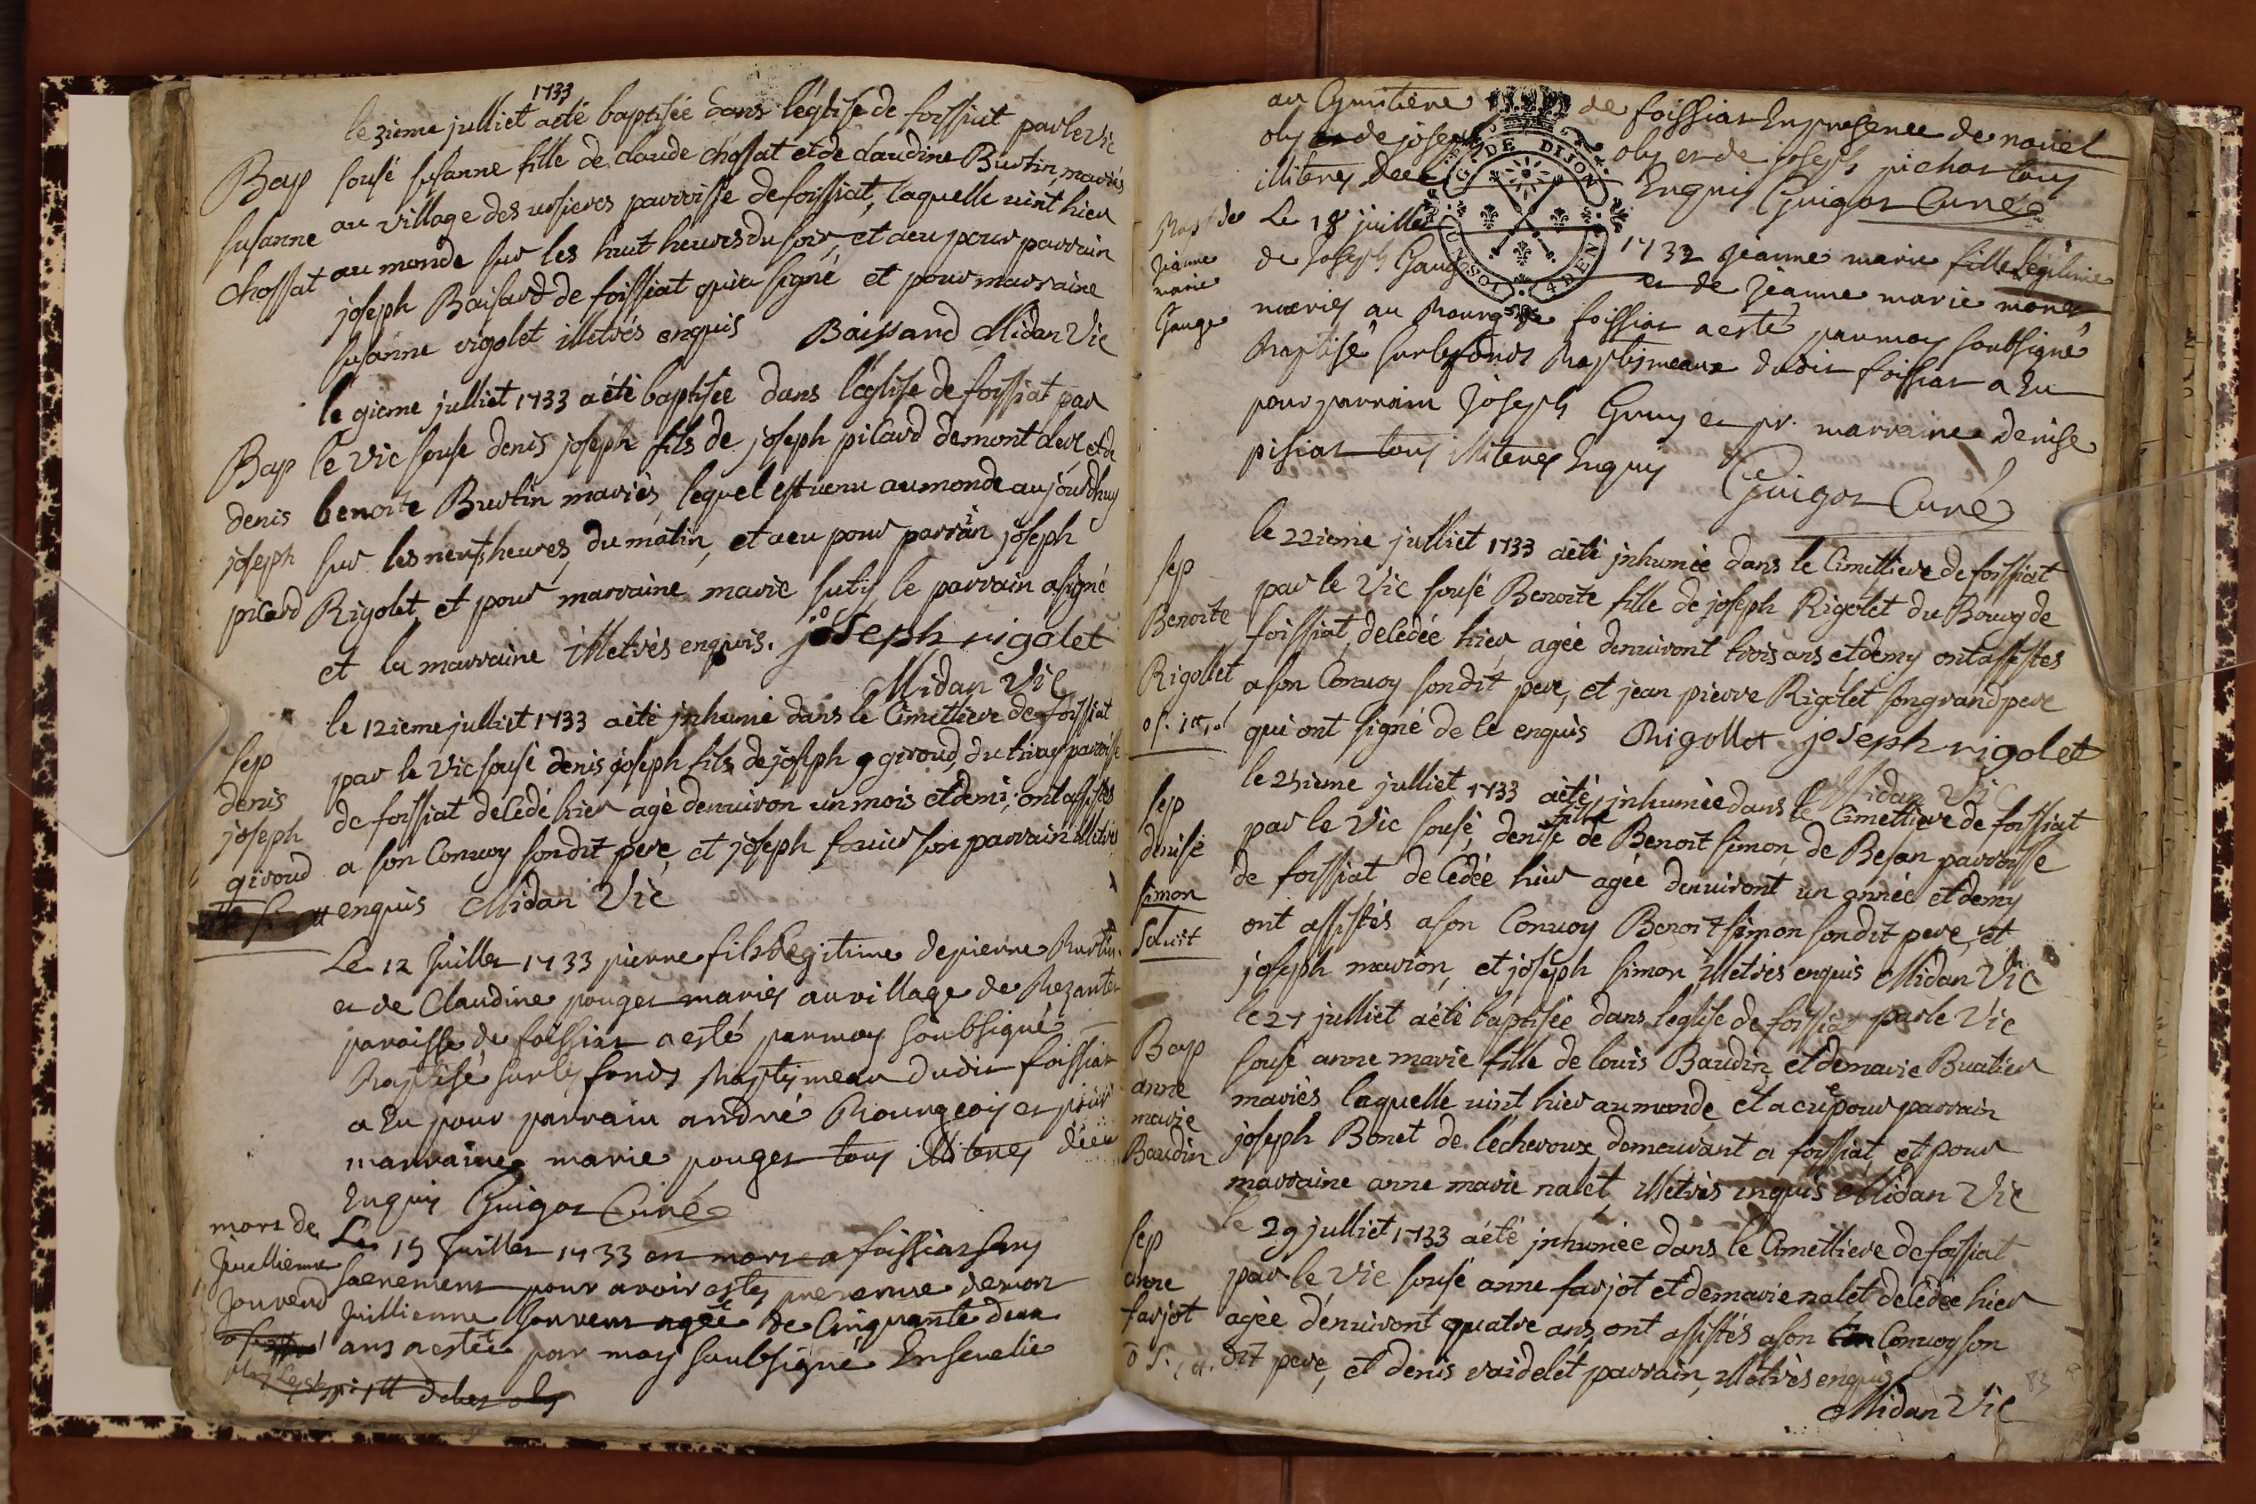 1733
le 3ieme julliet aété baptisée dans léglise de foissiat par le vic
Bap sousé susanne fille de claude chossat et de claudine Burtin, mariés
susanne au village des ussieres parroisse de foissiat, laquelle vint hier
chossat au monde sur les huit heures du soir, et a eu pour parrain
joseph Baisard de foissiat qui a signé et pour marraine
susanne rigolet illetrés enquis Baissard Midan Vic
le 9ieme julliet 1733 aété baptisée dans léglise de foissiat par
Bap le vic sousé denis joseph fils de joseph picard de mont et de
denis benoite Burtin mariés, lequel est venu au monde aujourdhuy
joseph sur les neufs heures, du matin, et a eu pour parrain joseph
picard Rigolet, et pour marraine marie le parrain a signé
et la marraine illetrés enquis. joseph rigolet
Midan Vic
le 12ieme julliet 1733 aété jnhumé dans le Cimettiere de foissiat
sep par le Vic sousé denis joseph fils de joseph giroud, du parroisse
denis de foissiat decedé hier agé denuiron un mois et demi, ont assistés
joseph a son Conuoy son dit pere, et joseph son parrain illetrés
giroud enquis Midan Vic
Le 12 Juillet 1733 pierre fils Legitime de pierre Burtin
et de Claudine pouget mariés au village de
paroisse de foissiat a esté par moy soubsigné
Baptisé sur les fonds Baptismeaux dudit foissiat
a Eu pour parrain andré Bourgeois et pour
marraine marie pouget tous illiterés de ce
Enquis Guigot Curé
mort de Le 15 Juillet 1733 est morte a foissiat sans
Juillienne sacrement pour avoir estés de mort
Jouvend Juillienne Jouvent agée de Cinquante deux
ans a estée par moy soubsigné Ensevelie
au Cymitiere de foissiat En presence de noüel
oby et de joseph oby et de joseph pichot tous
illiterés de ce Enquis Guigot Curé
GEN. DE DIJON
4 DEN
Bapt de Le 18 juillet 1732 Jeanne marie fille Legitime
Jeanne de Joseph Gauge et de Jeanne marie
marie mariés au Bourg de foissiat a esté par moy soubsigné
Gauge Baptisé sur les fonds Baptismeaux dudit foissiat a Eu
pour parrain Joseph et pr. marraine denise
pisiat tous illiterés Enquis
Guigot Curé
le 22ieme julliet 1733 aété jnhumée dans le Cimettiere de foissiat
sep par le Vic sousé Benoite fille de joseph Rigolet du Bourg de
Benoite foissiat, decedée hier agée denuiront trois ans et demy ont assistes
Rigollet a son Conuoy son dit pere, et jean pierre Rigolet son grand pere
qui ont signé de ce enquis Rigollet joseph rigolet
Midan Vic
le 25ieme julliet 1733 aété jnhumée dans le Cimettiere de foissiat
sep par le Vic sousé, denise fille de Benoit simon, de Besan parroisse
denise de foissiat decedée hier agée denuiront un année et demy
simon ont assistés a son Conuoy Benoit simon son dit pere, et
joseph marion, et joseph simon illetrés enquis Midan Vic
le 27 julliet aété baptisée dans leglise de foissiat par le Vic
Bap sousé anne marie fille de louis Baudin et de marie Buatier
anne mariés laquelle vint hier au monde et a eue pour parrain
marie joseph Bonet de lécheroux demeurant a foissiat et pour
Baudin marraine anne marie nalet, illetrés enquis Midan Vic
le 29 julliet 1733 aété jnhumée dans le Cimettiere de foissiat
sep par le Vic sousé anne farjot et de marie nalet decedée hier
anne agée denuiront quatre ans, ont assistés a son Conuoy son
farjot dit pere, et denis vaidelet parrain, illetrés enquis
Midan Vic
83